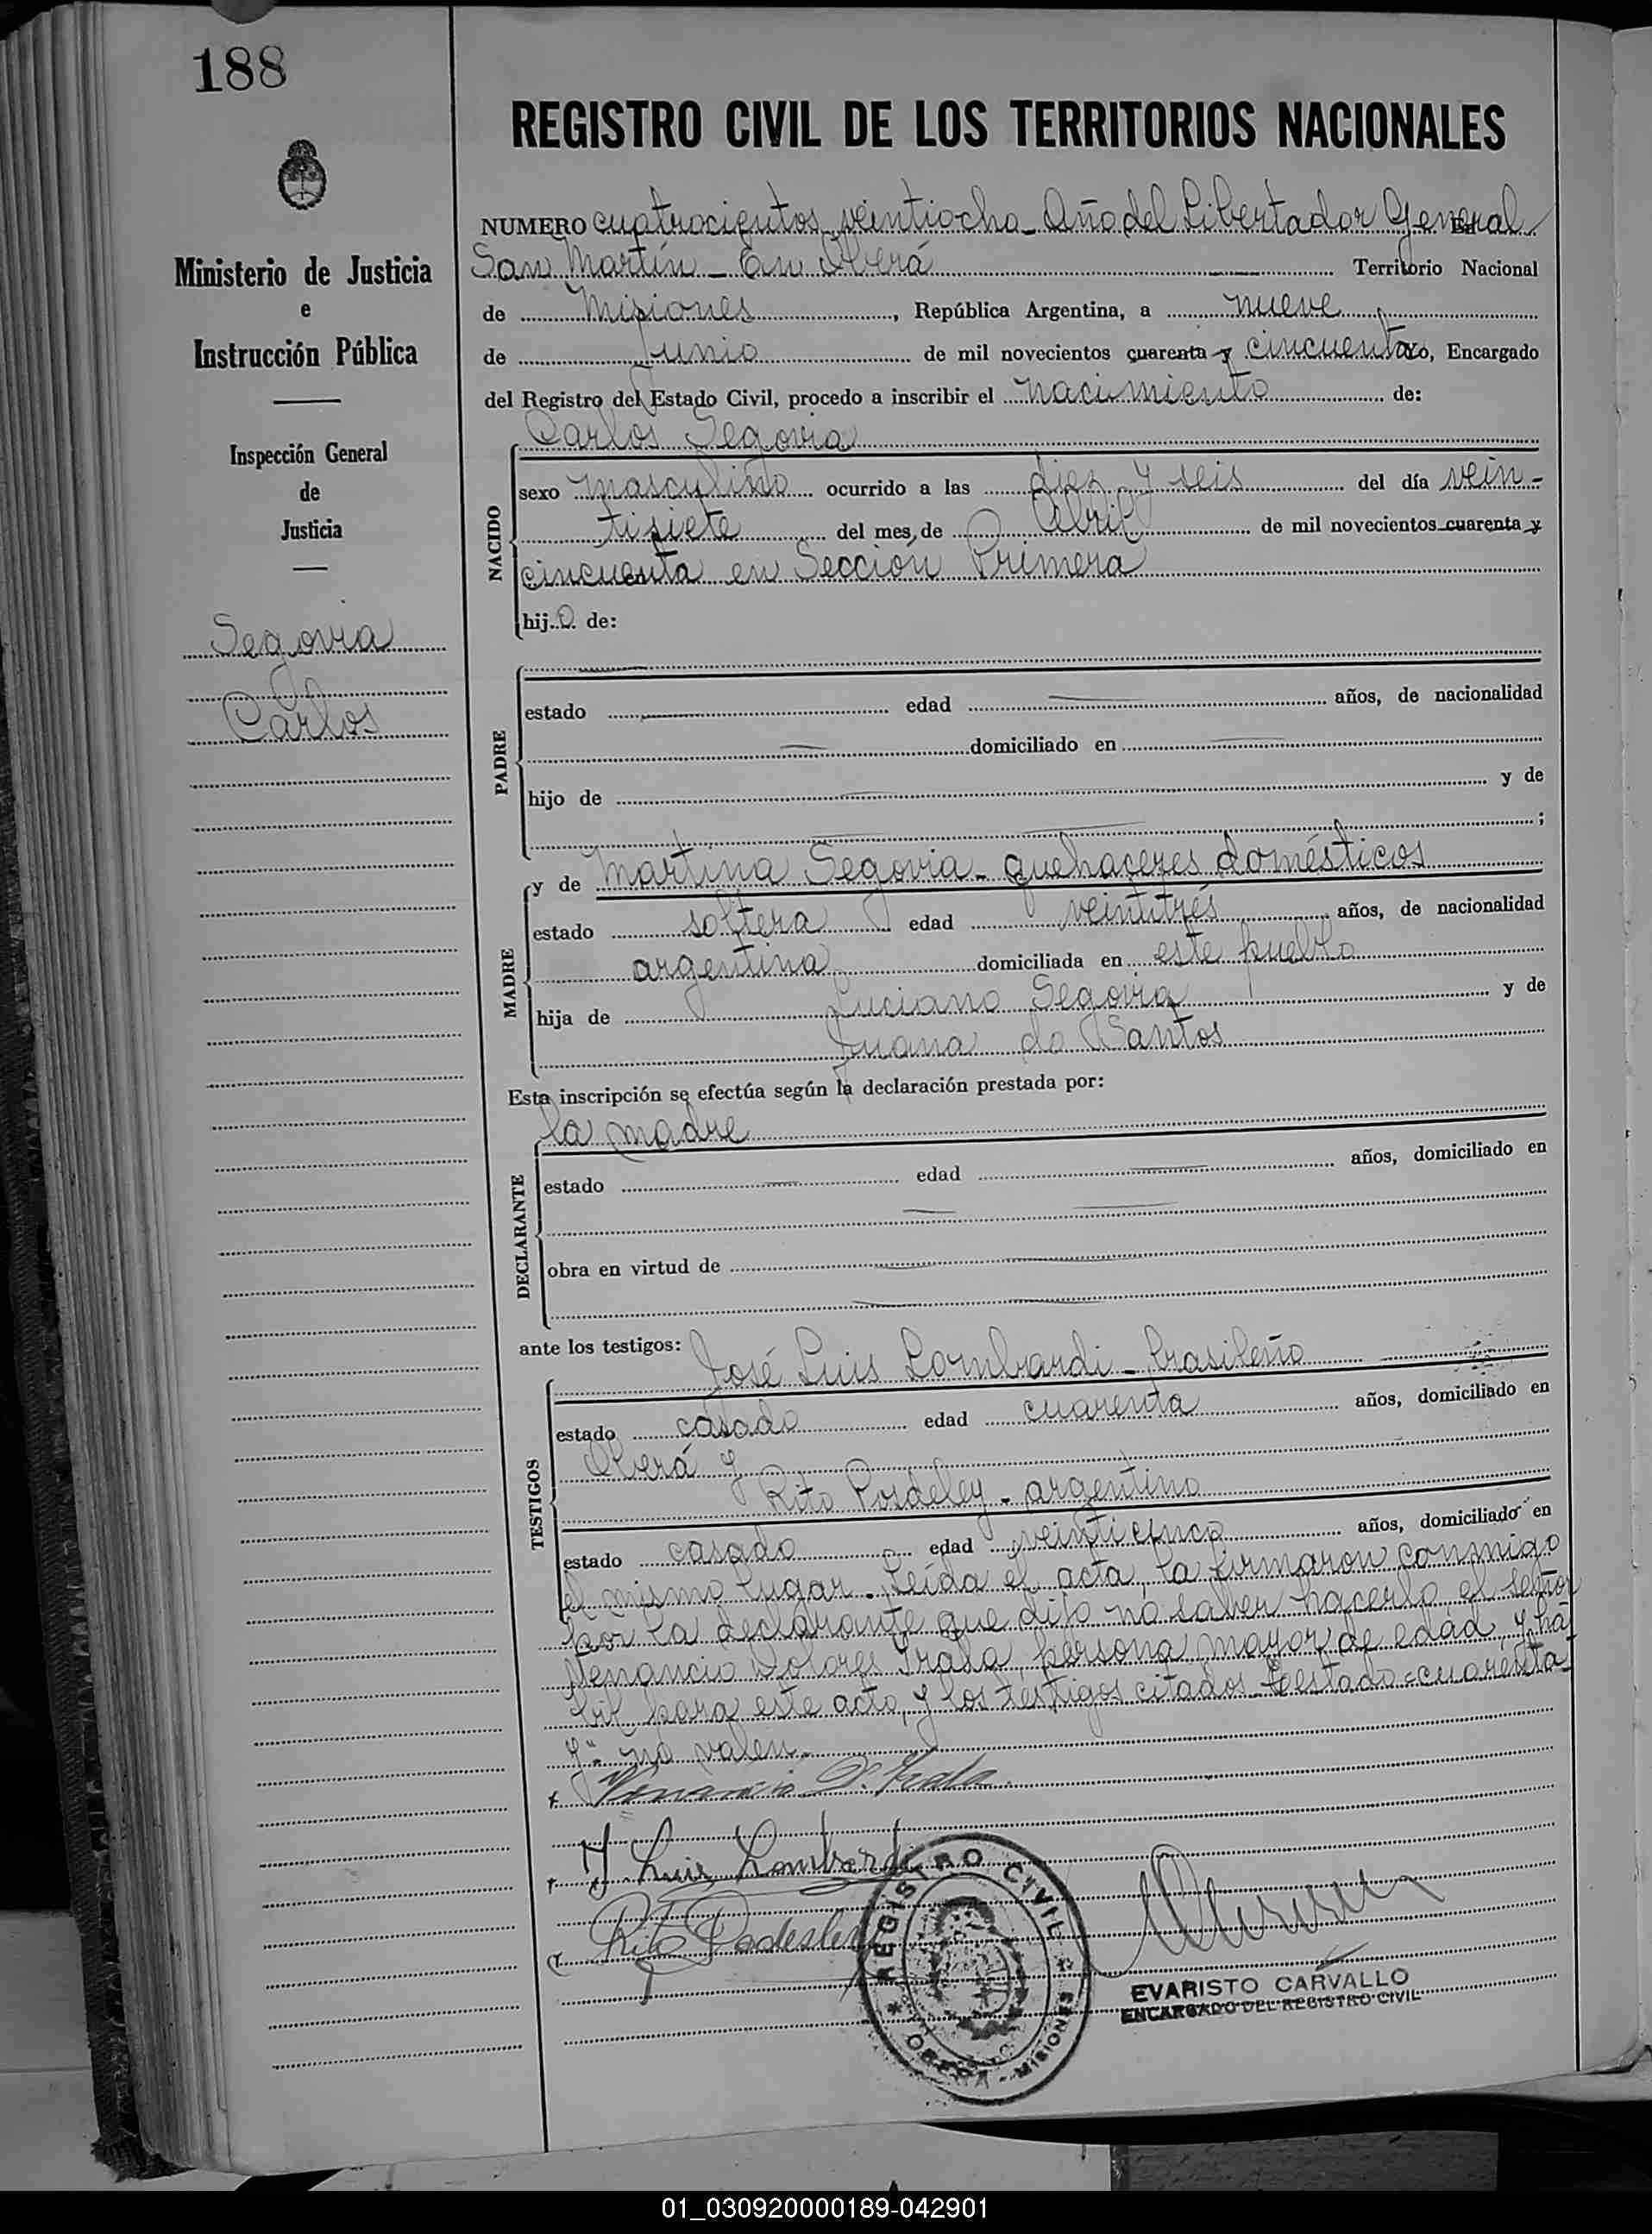 188
REGISTRO CIVIL DE LOS TERRITORIOS NACIONALES
Ministerio de Justicia
e
Instrucción Pública
Inspección General
de
Justicia
Segovia
Carlos
NUMERO cuatrocientos veintiocho - Año del Libertador General
San Martín - En Oberá Territorio Nacional
de Misiones, República Argentina, a nueve
de Junio de mil novecientos cuarenta y cincuenta yo, Encargado
del Registro del Estado Civil, procedo a inscribir el nacimiento de:
Carlos Segovia
NACIDO
sexo masculino ocurrido a las diez y seis del día vein-
tisiete del mes de Abril de mil novecientos cuarenta y
cincuenta en Sección Primera
hijo de:
PADRE
estado edad años, de nacionalidad
domiciliado en
hijo de y de
;
MADRE
y de Martina Segovia - quehaceres domésticos
estado soltera edad veintitrés años, de nacionalidad
argentina domiciliada en este pueblo
hija de Luciano Segovia y de
Juana do Santos
Esta inscripción se efectúa según la declaración prestada por:
la madre
DECLARANTE
estado edad años, domiciliado en
obra en virtud de
ante los testigos: José Luis Lombardi - brasileño
TESTIGOS
estado casado edad cuarenta años, domiciliado en
Oberá y
Rito - argentino
estado casado edad veinticinco años, domiciliado en
el mismo lugar. Leída el acta, la firmaron conmigo
por la declarante que dijo no saber hacerlo el señor
Venancio Dolores Irala, persona mayor de edad y há-
bil para este acto, y los testigos citados - Testado = cuarenta
y = no valen.
Venancio D. Irala
J Luis Lombardi
Rito
REGISTRO CIVIL
OBERA - MISIONES
EVARISTO CARVALLO
ENCARGADO DEL REGISTRO CIVIL
01_030920000189-042901